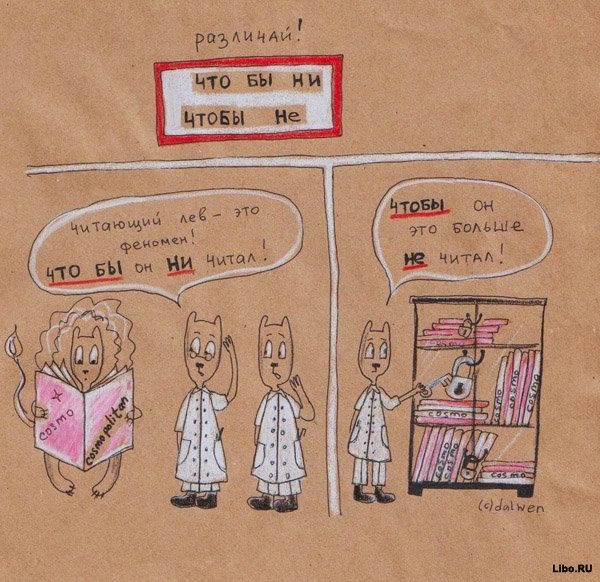 различай!
что бы ни
чтобы не
читающий лев - это
феномен!
что бы он ни читал!
чтобы он
это больше
не читал!
cosmo
cosmopolitan
cosmo
cosmo
cosmo
cosmo
cosmo
cosmo
(c)dalwen
Libo.RU